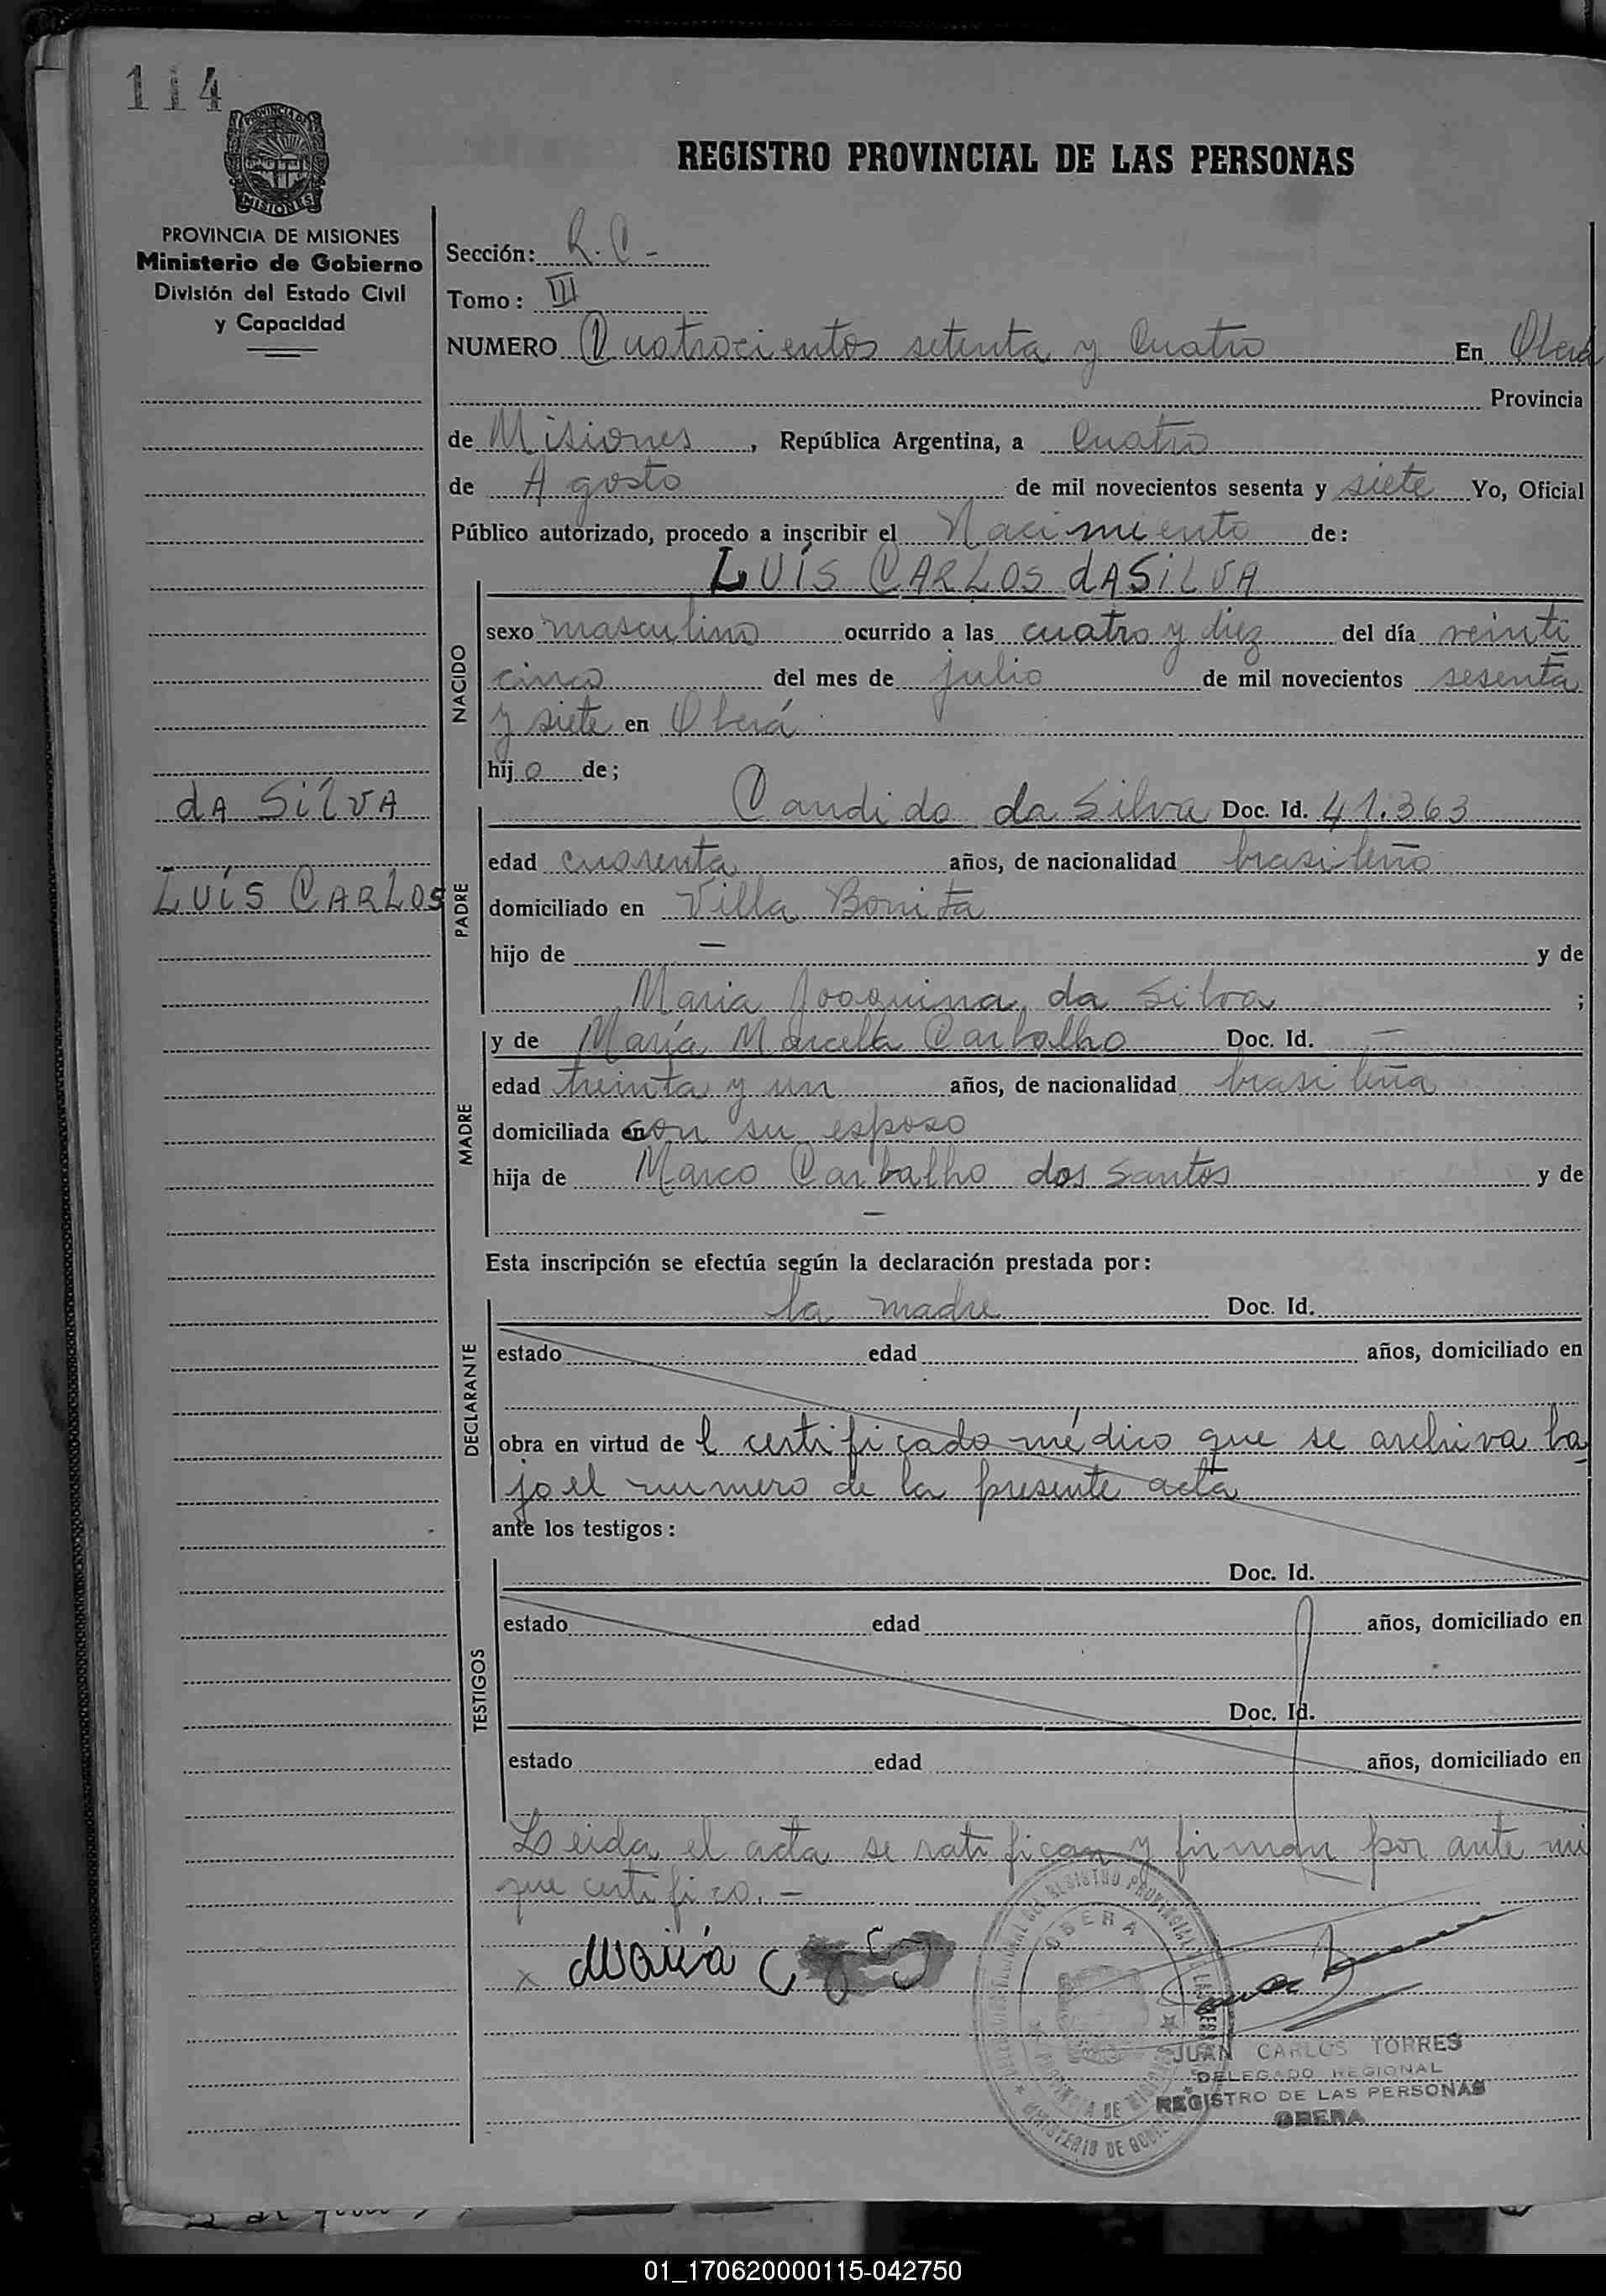 114
PROVINCIA DE
MISIONES
PROVINCIA DE MISIONES
Ministerio de Gobierno
División del Estado Civil
y Capacidad
REGISTRO PROVINCIAL DE LAS PERSONAS
Sección: R.C-
Tomo: III
NUMERO Cuatrocientos setenta y cuatro En Oberá
Provincia
de Misiones, República Argentina, a cuatro
de Agosto de mil novecientos sesenta y siete Yo, Oficial
Público autorizado, procedo a inscribir el Nacimiento de:
LUÍS CARLOS dA SiLVA
NACIDO
sexo masculino ocurrido a las cuatro y diez del día veinti
cinco del mes de julio de mil novecientos sesenta
y siete en Oberá
hijo de;
dA SiLVA
LUÍS CARLOS
PADRE
Candido da Silva Doc. Id. 41.363
edad cuarenta años, de nacionalidad brasileño
domiciliado en Villa Bonita
hijo de — y de
Maria Joaquina da Silva ;
MADRE
y de María Marcella Carbalho Doc. Id. —
edad treinta y un años, de nacionalidad brasileña
domiciliada con su esposo
hija de Marco Carbalho dos Santos y de
—
Esta inscripción se efectúa según la declaración prestada por:
DECLARANTE
la madre Doc. Id.
estado edad años, domiciliado en
obra en virtud del certificado médico que se archiva ba
jo el numero de la presente acta
ante los testigos:
TESTIGOS
Doc. Id.
estado edad años, domiciliado en
Doc. Id.
estado edad años, domiciliado en
Leida el acta se ratifican y firman por ante mi
que certifico.-
x María
OBERA
JUAN CARLOS TORRES
DELEGADO REGIONAL
REGISTRO DE LAS PERSONAS
OBERA
01_170620000115-042750